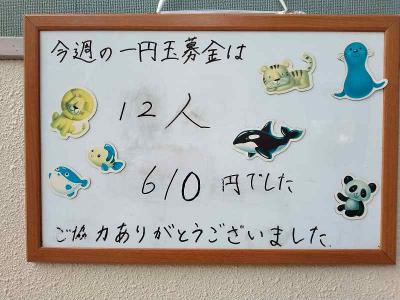 今週の一円玉募金は
12人
610円でした
ご協力ありがとうございました.